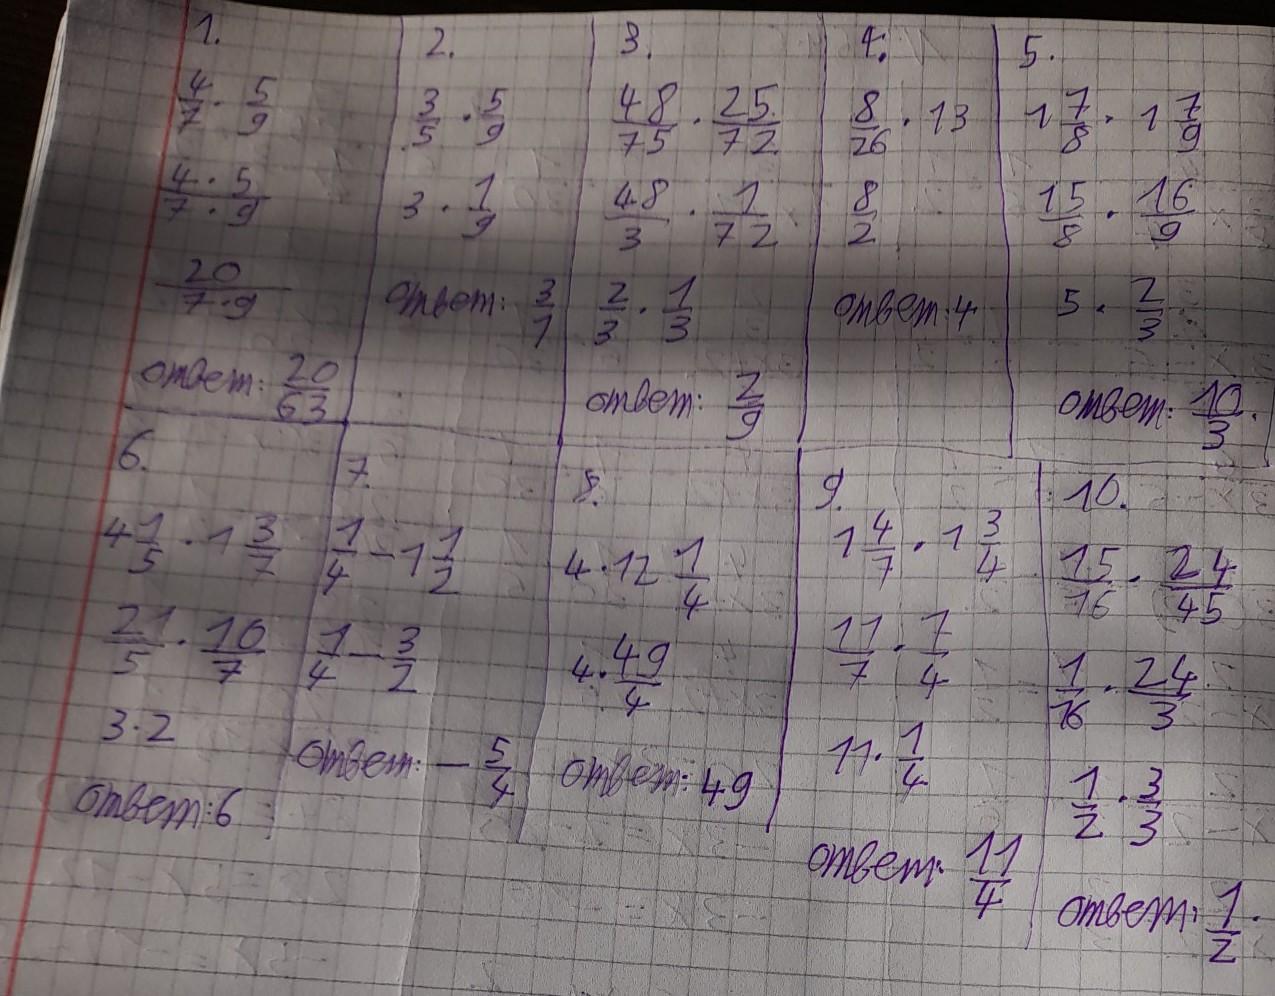 1.
4/7 · 5/9
4 · 5 / 7 · 9
20 / 7 · 9
ответ: 20/63
2.
3/5 · 5/9
3 · 1/9
ответ: 3/1
3.
48/75 · 25/72
48/3 · 1/72
2/3 · 1/3
ответ: 2/9
4.
8/26 · 13
8/2
ответ: 4
5.
1 7/8 · 1 7/9
15/8 · 16/9
5 · 2/3
ответ: 10/3.
6.
4 1/5 · 1 3/7
21/5 · 10/7
3 · 2
ответ: 6
7.
1/4 – 1 1/2
1/4 – 3/2
ответ: – 5/4
8.
4 · 12 1/4
4 · 49/4
ответ: 49
9.
1 4/7 · 1 3/4
11/7 · 7/4
11 · 1/4
ответ: 11/4
10.
15/16 · 24/45
1/16 · 24/3
1/2 · 3/3
ответ: 1/2.